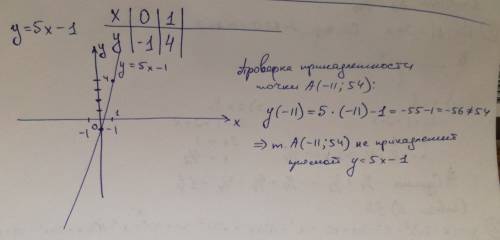 y=5x-1
x | 0 | 1
y | -1 | 4
y
y=5x-1
4
-1 0 -1 1 x
Проверка принадлежности
точки A(-11; 54):
y(-11)=5·(-11)-1=-55-1=-56≠54
⇒ т. A(-11; 54) не принадлежит
прямой y=5x-1